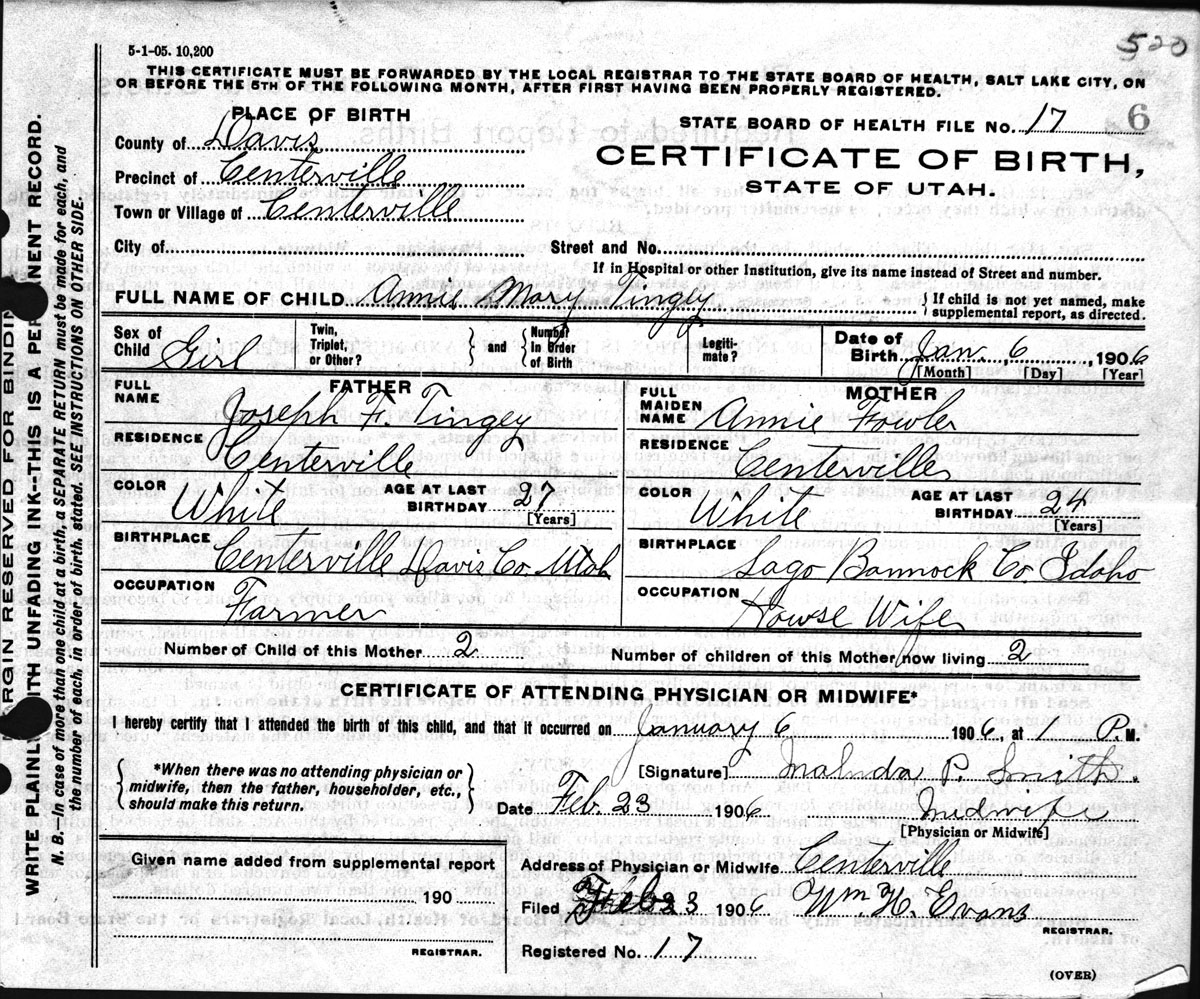 5-1-05. 10,200
520
THIS CERTIFICATE MUST BE FORWARDED BY THE LOCAL REGISTRAR TO THE STATE BOARD OF HEALTH, SALT LAKE CITY, ON
OR BEFORE THE 5TH OF THE FOLLOWING MONTH, AFTER FIRST HAVING BEEN PROPERLY REGISTERED.
PLACE OF BIRTH
STATE BOARD OF HEALTH FILE No. 17 6
County of Davis
CERTIFICATE OF BIRTH,
STATE OF UTAH.
Precinct of Centerville
Town or Village of Centerville
City of Street and No.
If in Hospital or other Institution, give its name instead of Street and number.
FULL NAME OF CHILD Annie Mary Tingey { If child is not yet named, make
supplemental report, as directed.
Sex of
Child Girl
Twin,
Triplet,
or Other? } and { Number
In Order
of Birth
Legiti-
mate?
Date of
Birth Jan. 6 1906
[Month] [Day] [Year]
FATHER
FULL
NAME Joseph F. Tingey
RESIDENCE
Centerville
COLOR White
AGE AT LAST
BIRTHDAY 27
[Years]
BIRTHPLACE
Centerville Davis Co Utah
OCCUPATION
Farmer
MOTHER
FULL
MAIDEN
NAME Annie Fowler
RESIDENCE
Centerville
COLOR White
AGE AT LAST
BIRTHDAY 24
[Years]
BIRTHPLACE
Lago Bannock Co. Idaho
OCCUPATION
Howse Wife
Number of Child of this Mother 2
Number of children of this Mother now living 2
CERTIFICATE OF ATTENDING PHYSICIAN OR MIDWIFE*
I hereby certify that I attended the birth of this child, and that it occurred on January 6 1906, at 1 P.M.
{ *When there was no attending physician or
midwife, then the father, householder, etc.,
should make this return. }
[Signature] Malinda P. Smith.
Date Feb 23 1906 Midwife
[Physician or Midwife]
Given name added from supplemental report
190
REGISTRAR.
Address of Physician or Midwife Centerville
Filed Feb 23 1906 Wm H. Evans
REGISTRAR.
Registered No. 17
(OVER)
MARGIN RESERVED FOR BINDING
WRITE PLAINLY WITH UNFADING INK--THIS IS A PERMANENT RECORD.
N. B. In case of more than one child at a birth, a SEPARATE RETURN must be made for each, and
the number of each, in order of birth, stated. SEE INSTRUCTIONS ON OTHER SIDE.